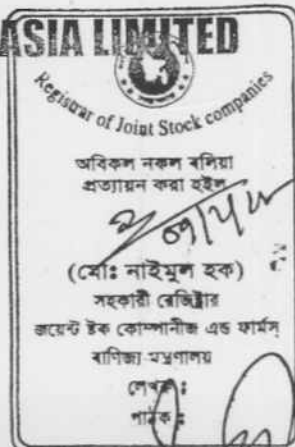 ASIA LIMITED
Registrar of Joint Stock companies
অবিকল নকল বলিয়া
প্রত্যায়ন করা হইল
(মোঃ নাইমুল হক)
সহকারী রেজিষ্ট্রার
জয়েন্ট ষ্টক কোম্পানীজ এন্ড ফার্মস্
বাণিজ্য মন্ত্রণালয়
লেখক :
পাঠক :